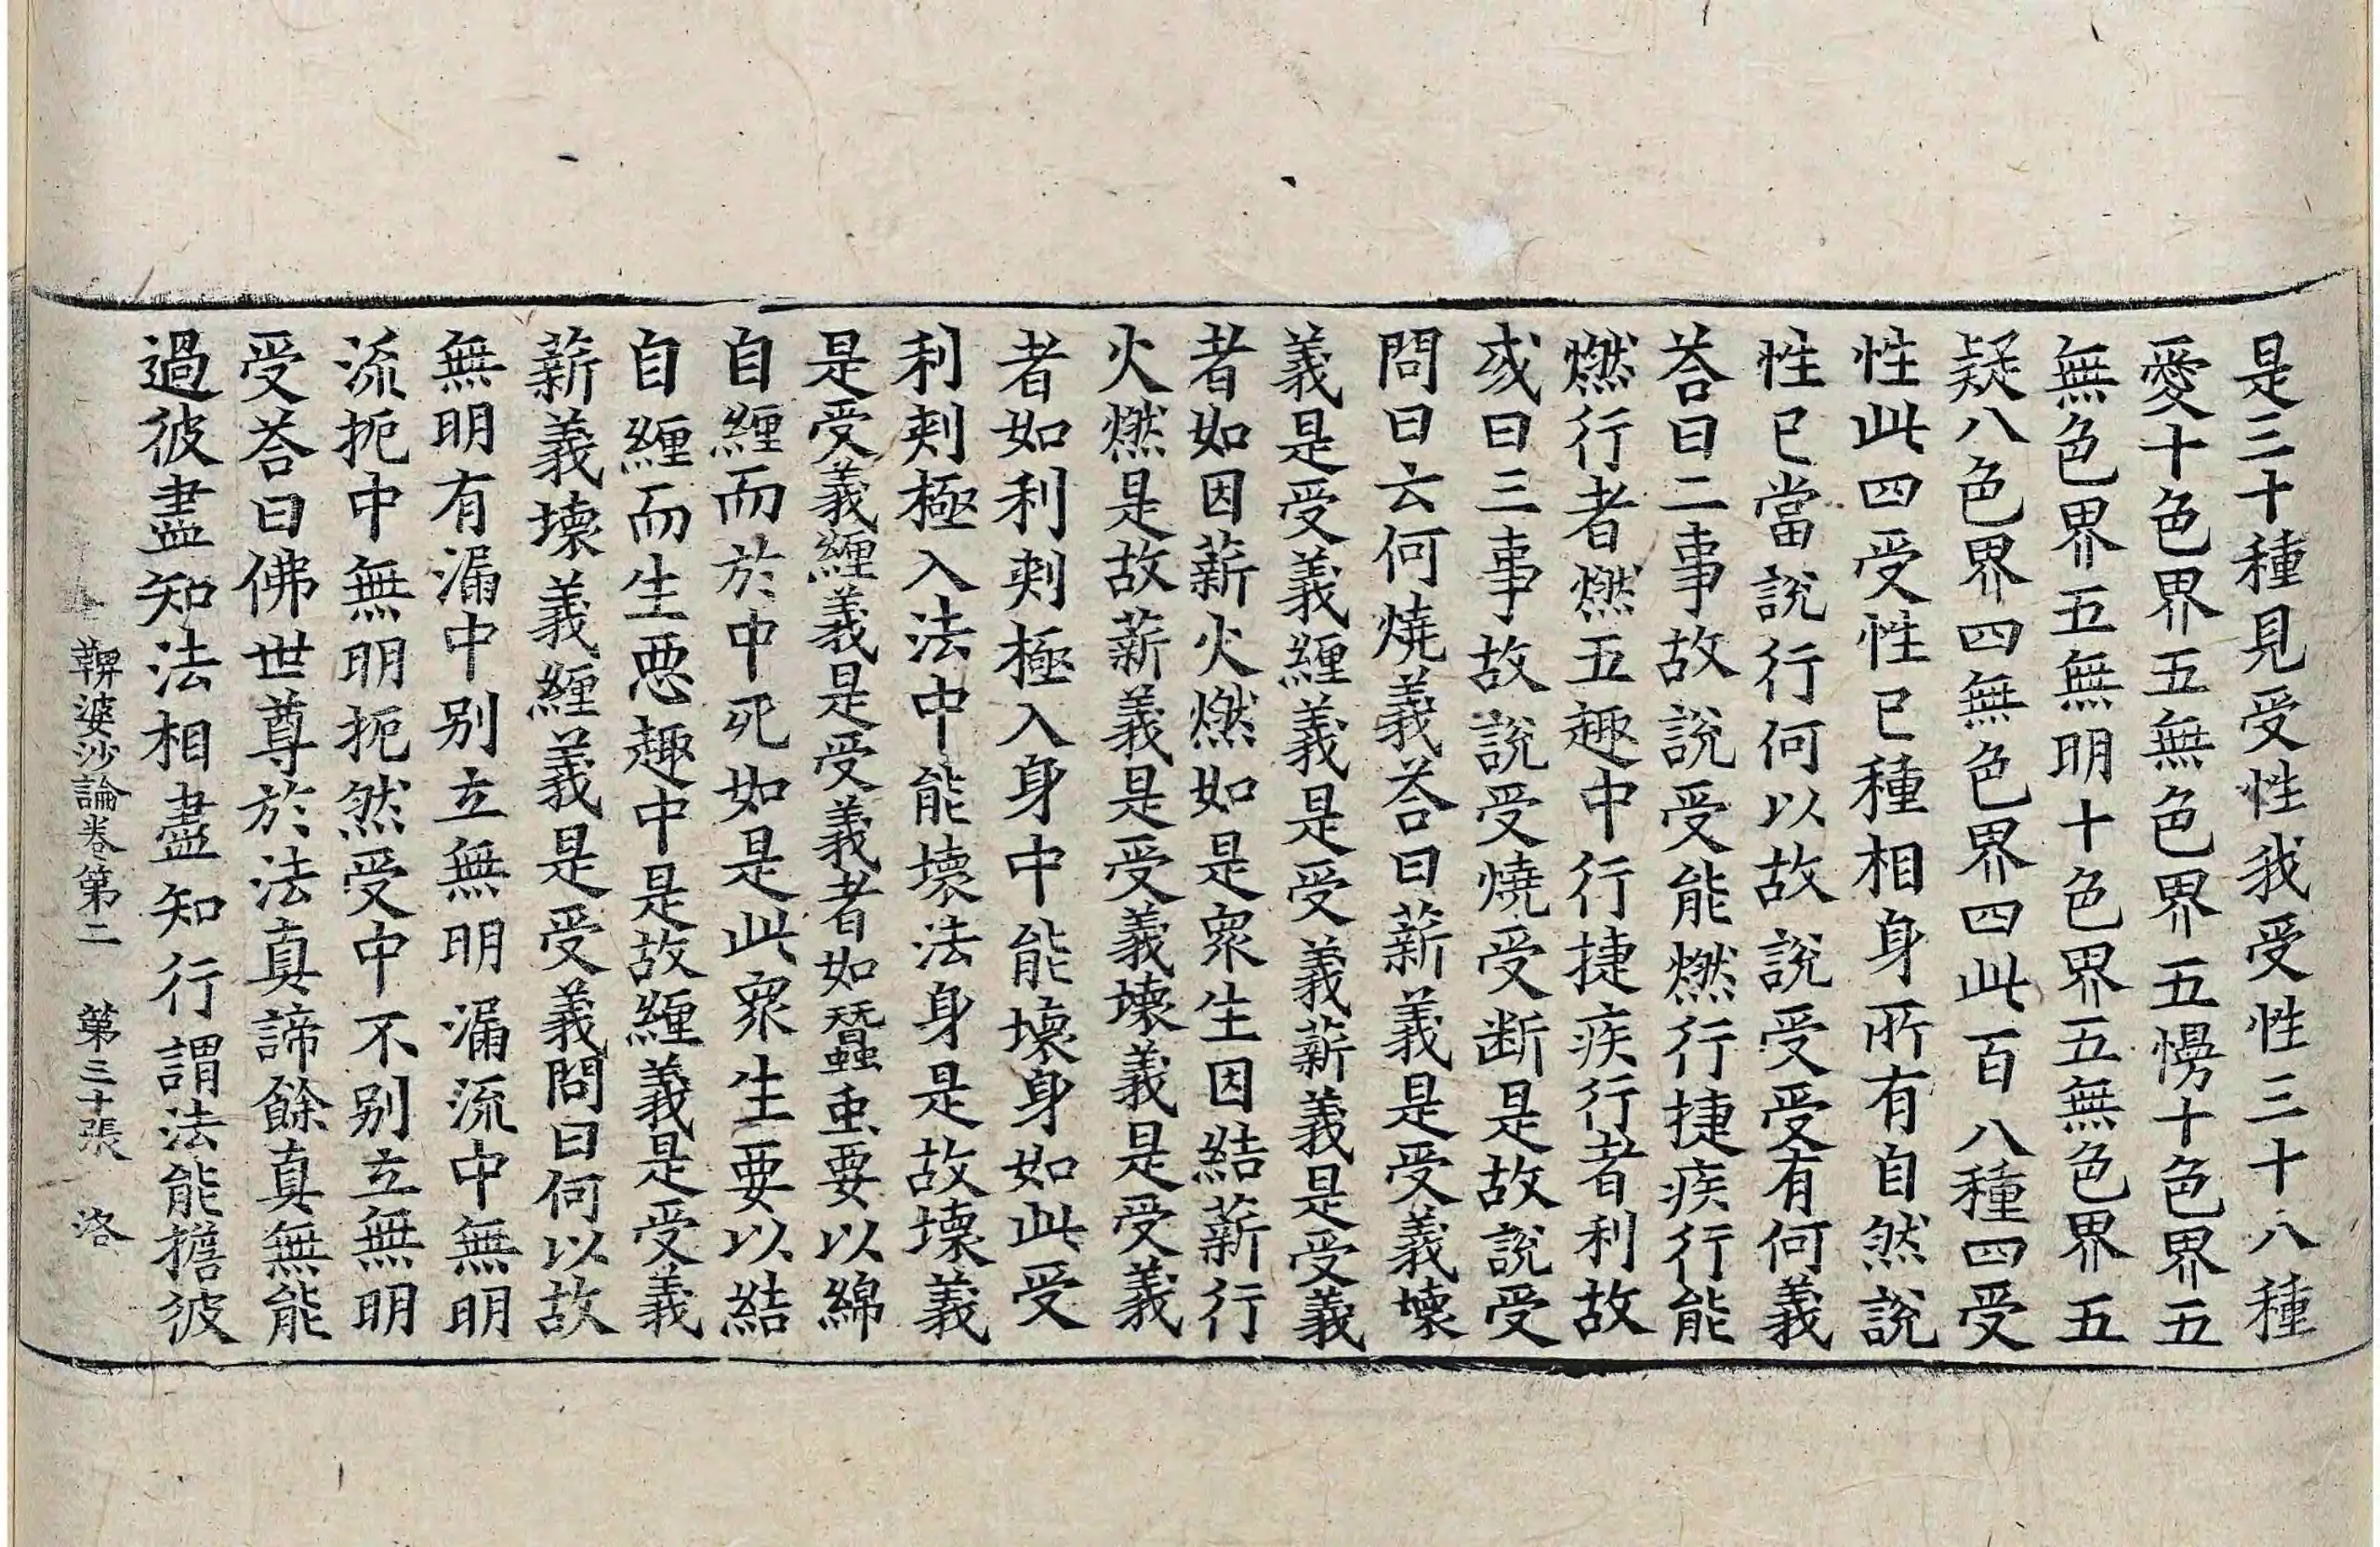 是三十種見受性我受性三十八種
愛十色界五無色界五慢十色界五
無色界五無明十色界五無色界五
疑八色界四無色界四此百八種四受
性此四受性已種相身所有自然說
性已當說行何以故說受受有何義
荅曰二事故說受能燃行捷疾行能
燃行者燃五趣中行捷疾行者利故
或曰三事故說受燒受断是故說受
問曰云何燒義荅曰薪義是受義壞
義是受義纏義是受義薪義是受義
者如因薪火燃如是衆生因結薪行
火燃是故薪義是受義壞義是受義
者如利刾極入身中能壞身如此受
利刾極入法中能壞法身是故壞義
是受義纏義是受義者如蠶虫要以綿
自纏而於中死如是此衆生要以結
自纏而生惡趣中是故纏義是受義
薪義壞義纏義是受義問曰何以故
無明有漏中别立無明漏流中無明
流扼中無明扼然受中不别立無明
受荅曰佛世尊於法真諦餘真無能
過彼盡知法相盡知行謂法能擔彼
鞞婆沙論卷第二　第三十張　洛